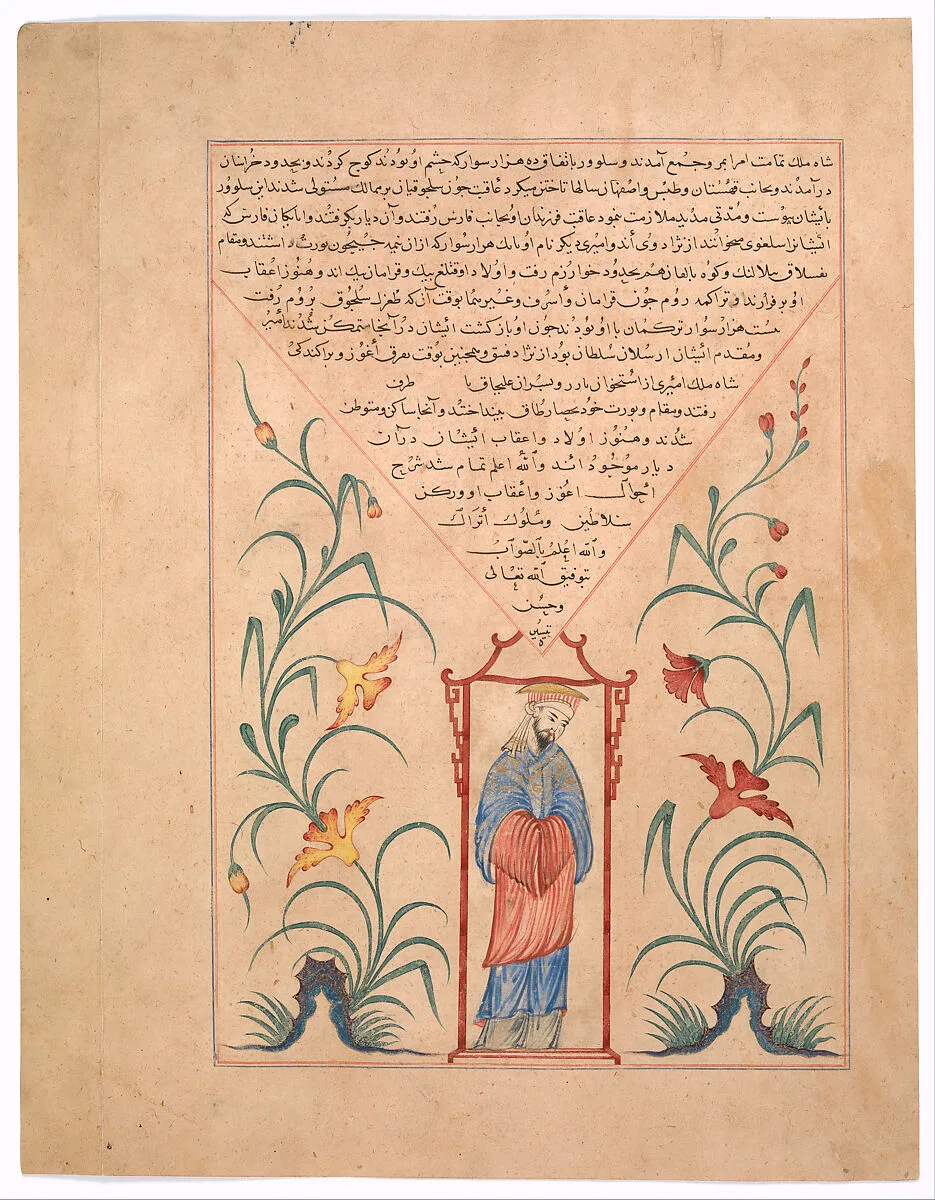 شاه ملك تمامت امرا بمرو جمع آمدند و سلوور باتفاق ده هزار سوار كه حشم او بودند كوج كردند و بحدود خراسان
درآمدند و بجانب قهستان و طبس و اصفهان سالها تاختن ميكرد عاقبت جون سلجوقيان بر ممالك مستولى شدند ابن سلوور
بايشان پيوست و مدتى مديد ملازمت نمود عاقبت فرزندان او بجانب فارس رفتند و آن ديار بگرفتند و اتابكان فارس كه
ايشانرا سلغوى ميخوانند از نژاد وى اند و اميرى ديكر نام او با يك هزار سوار كه ازان نيمه جيحون يورت داشتند و مقام
هم بحدود خوارزم رفت و اولاد او قتلغ بيك و قرامان بيك اند و هنوز اعقاب
او برقرارند و تراكمه روم جون قرامان و اسرون و غيرهما بوقت آن كه طغرل سلجوق بروم رفت
بيست هزار سوار تركمان با او بودند جون او باز كشت ايشان در آنجا متمكن شدند امير
و مقدم ايشان ارسلان سلطان بود از نژاد و همجنين بوقت تفرق اغوز و پراكندكى
شاه ملك اميرى از استخوان با دو پسر ان با طرف
رفتند و بمقام و يورت خود بحصار طاق بينداختند و آنجا ساكن و متوطن
شدند و هنوز اولاد و اعقاب ايشان در ان
ديار موجود اند والله اعلم تمام شد شرح
احوال اغوز و اعقاب او و ذكر
سلاطين و ملوك اتراك
والله اعلم بالصواب
بتوفيق الله تعالى
و حسن
تيسيره